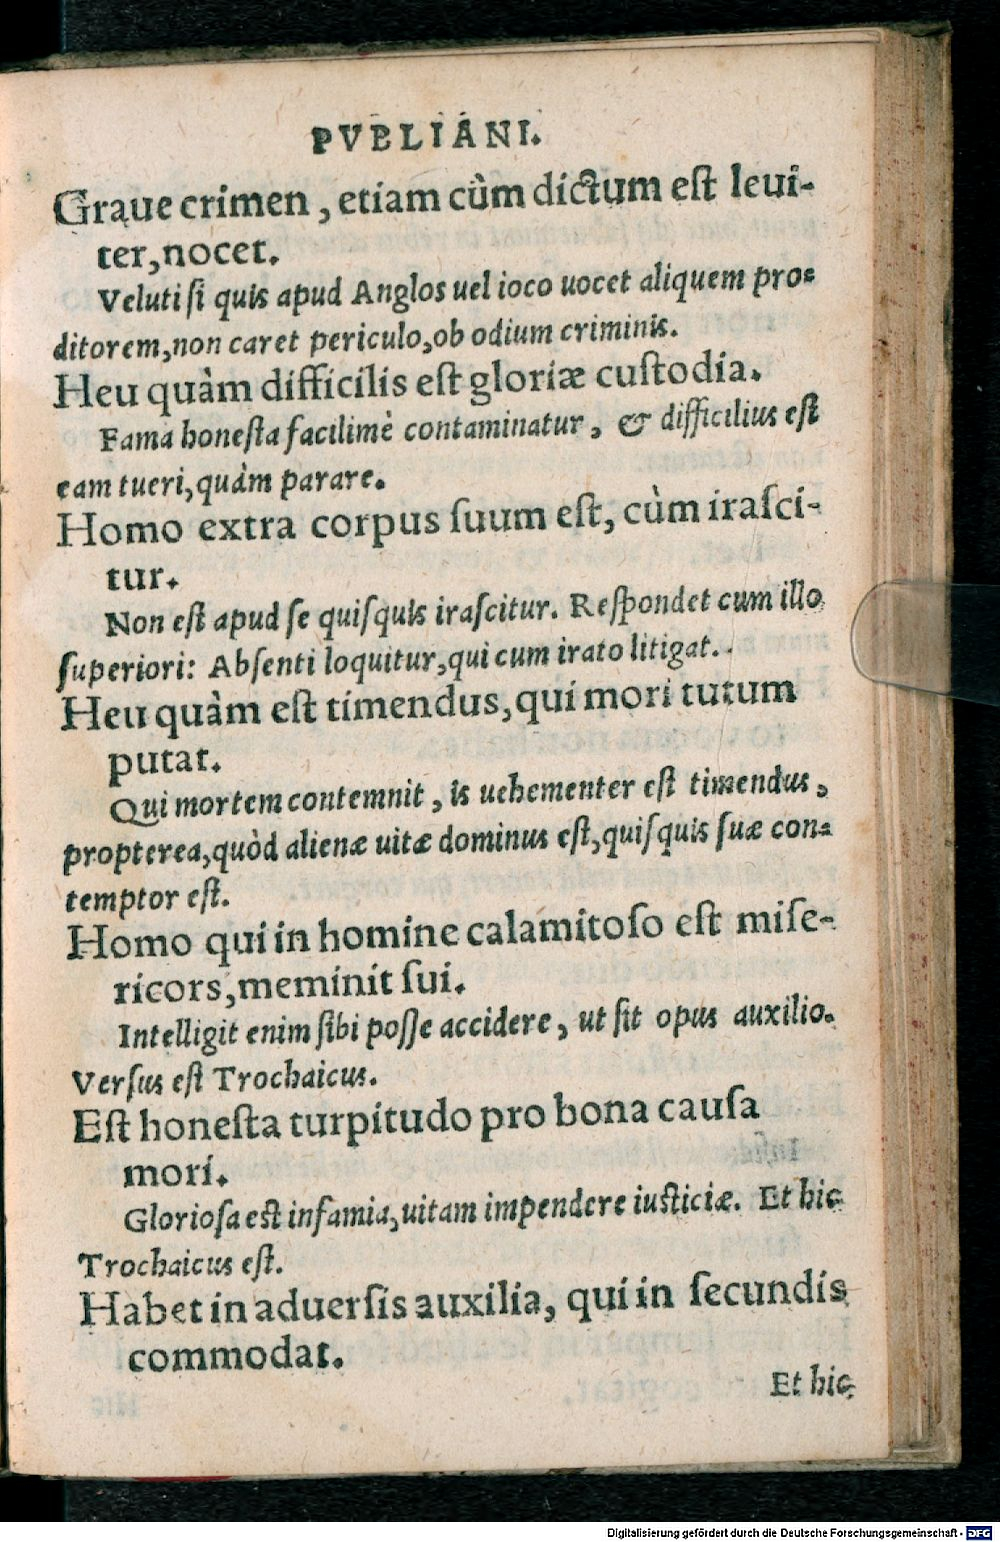 PVBLIANI.
Graue crimen, etiam cùm dictum est leui-
ter, nocet.
Veluti si quis apud Anglos uel ioco uocet aliquem pro-
ditorem, non caret periculo, ob odium criminis.
Heu quàm difficilis est gloriæ custodia.
Fama honesta facilimè contaminatur, & difficilius est
eam tueri, quàm parare.
Homo extra corpus suum est, cùm irasci-
tur.
Non est apud se quisquis irascitur. Respondet cum illo
superiori: Absenti loquitur, qui cum irato litigat.
Heu quàm est timendus, qui mori tutum
putat.
Qui mortem contemnit, is uehementer est timendus,
propterea, quòd alienæ uitæ dominus est, quisquis suæ con-
temptor est.
Homo qui in homine calamitoso est mise-
ricors, meminit sui.
Intelligit enim sibi posse accidere, ut sit opus auxilio.
Versus est Trochaicus.
Est honesta turpitudo pro bona causa
mori.
Gloriosa est infamia, uitam impendere iusticiæ. Et hic
Trochaicus est.
Habet in aduersis auxilia, qui in secundis
commodat.
Et hic
Digitalisierung gefördert durch die Deutsche Forschungsgemeinschaft - DFG